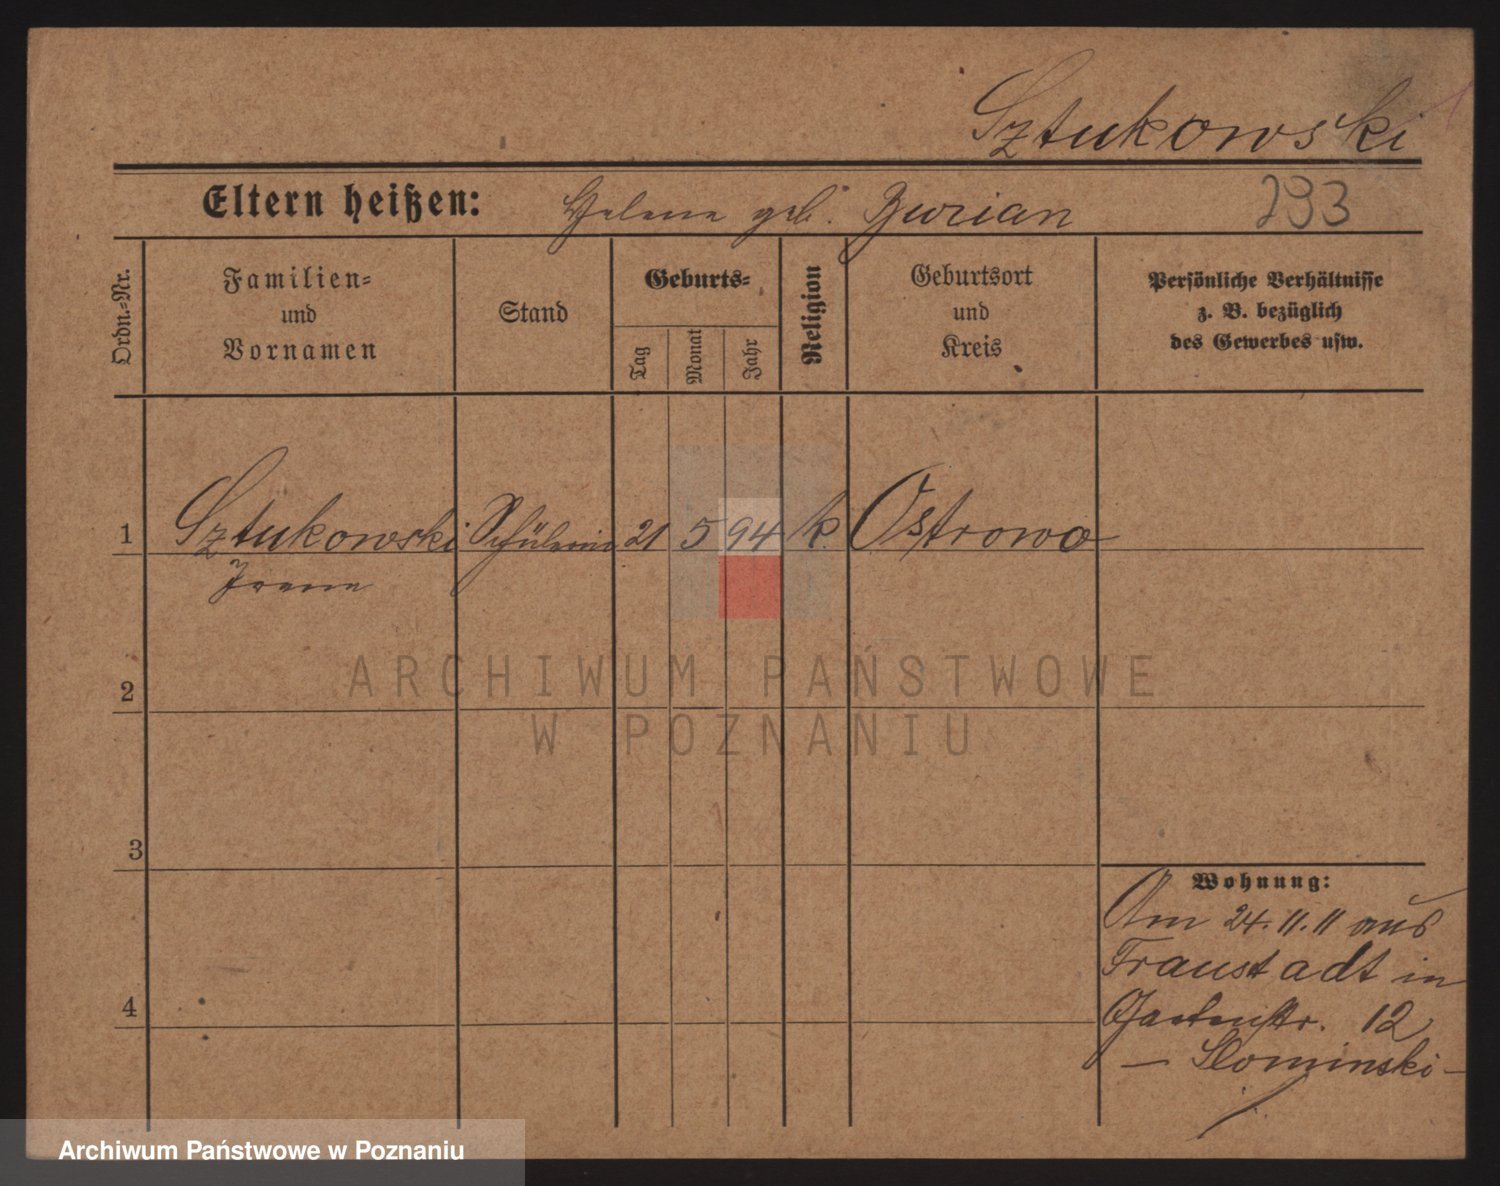 Sztukowski
Eltern heißen: Helene geb. Burian 293
Ordn.-Nr.
Familien-
und
Vornamen
Stand
Geburts-
Tag
Monat
Jahr
Religion
Geburtsort
und
Kreis
Persönliche Verhältnisse
z. B. bezüglich
des Gewerbes usw.
1 Sztukowski Schülerin 21 5 94 k. Ostrowo
Irene
2
3
4
Wohnung:
Am 24.11.11 aus
Fraustadt in
Gartenstr. 12
— Slominski —
ARCHIWUM PAŃSTWOWE
W POZNANIU
Archiwum Państwowe w Poznaniu